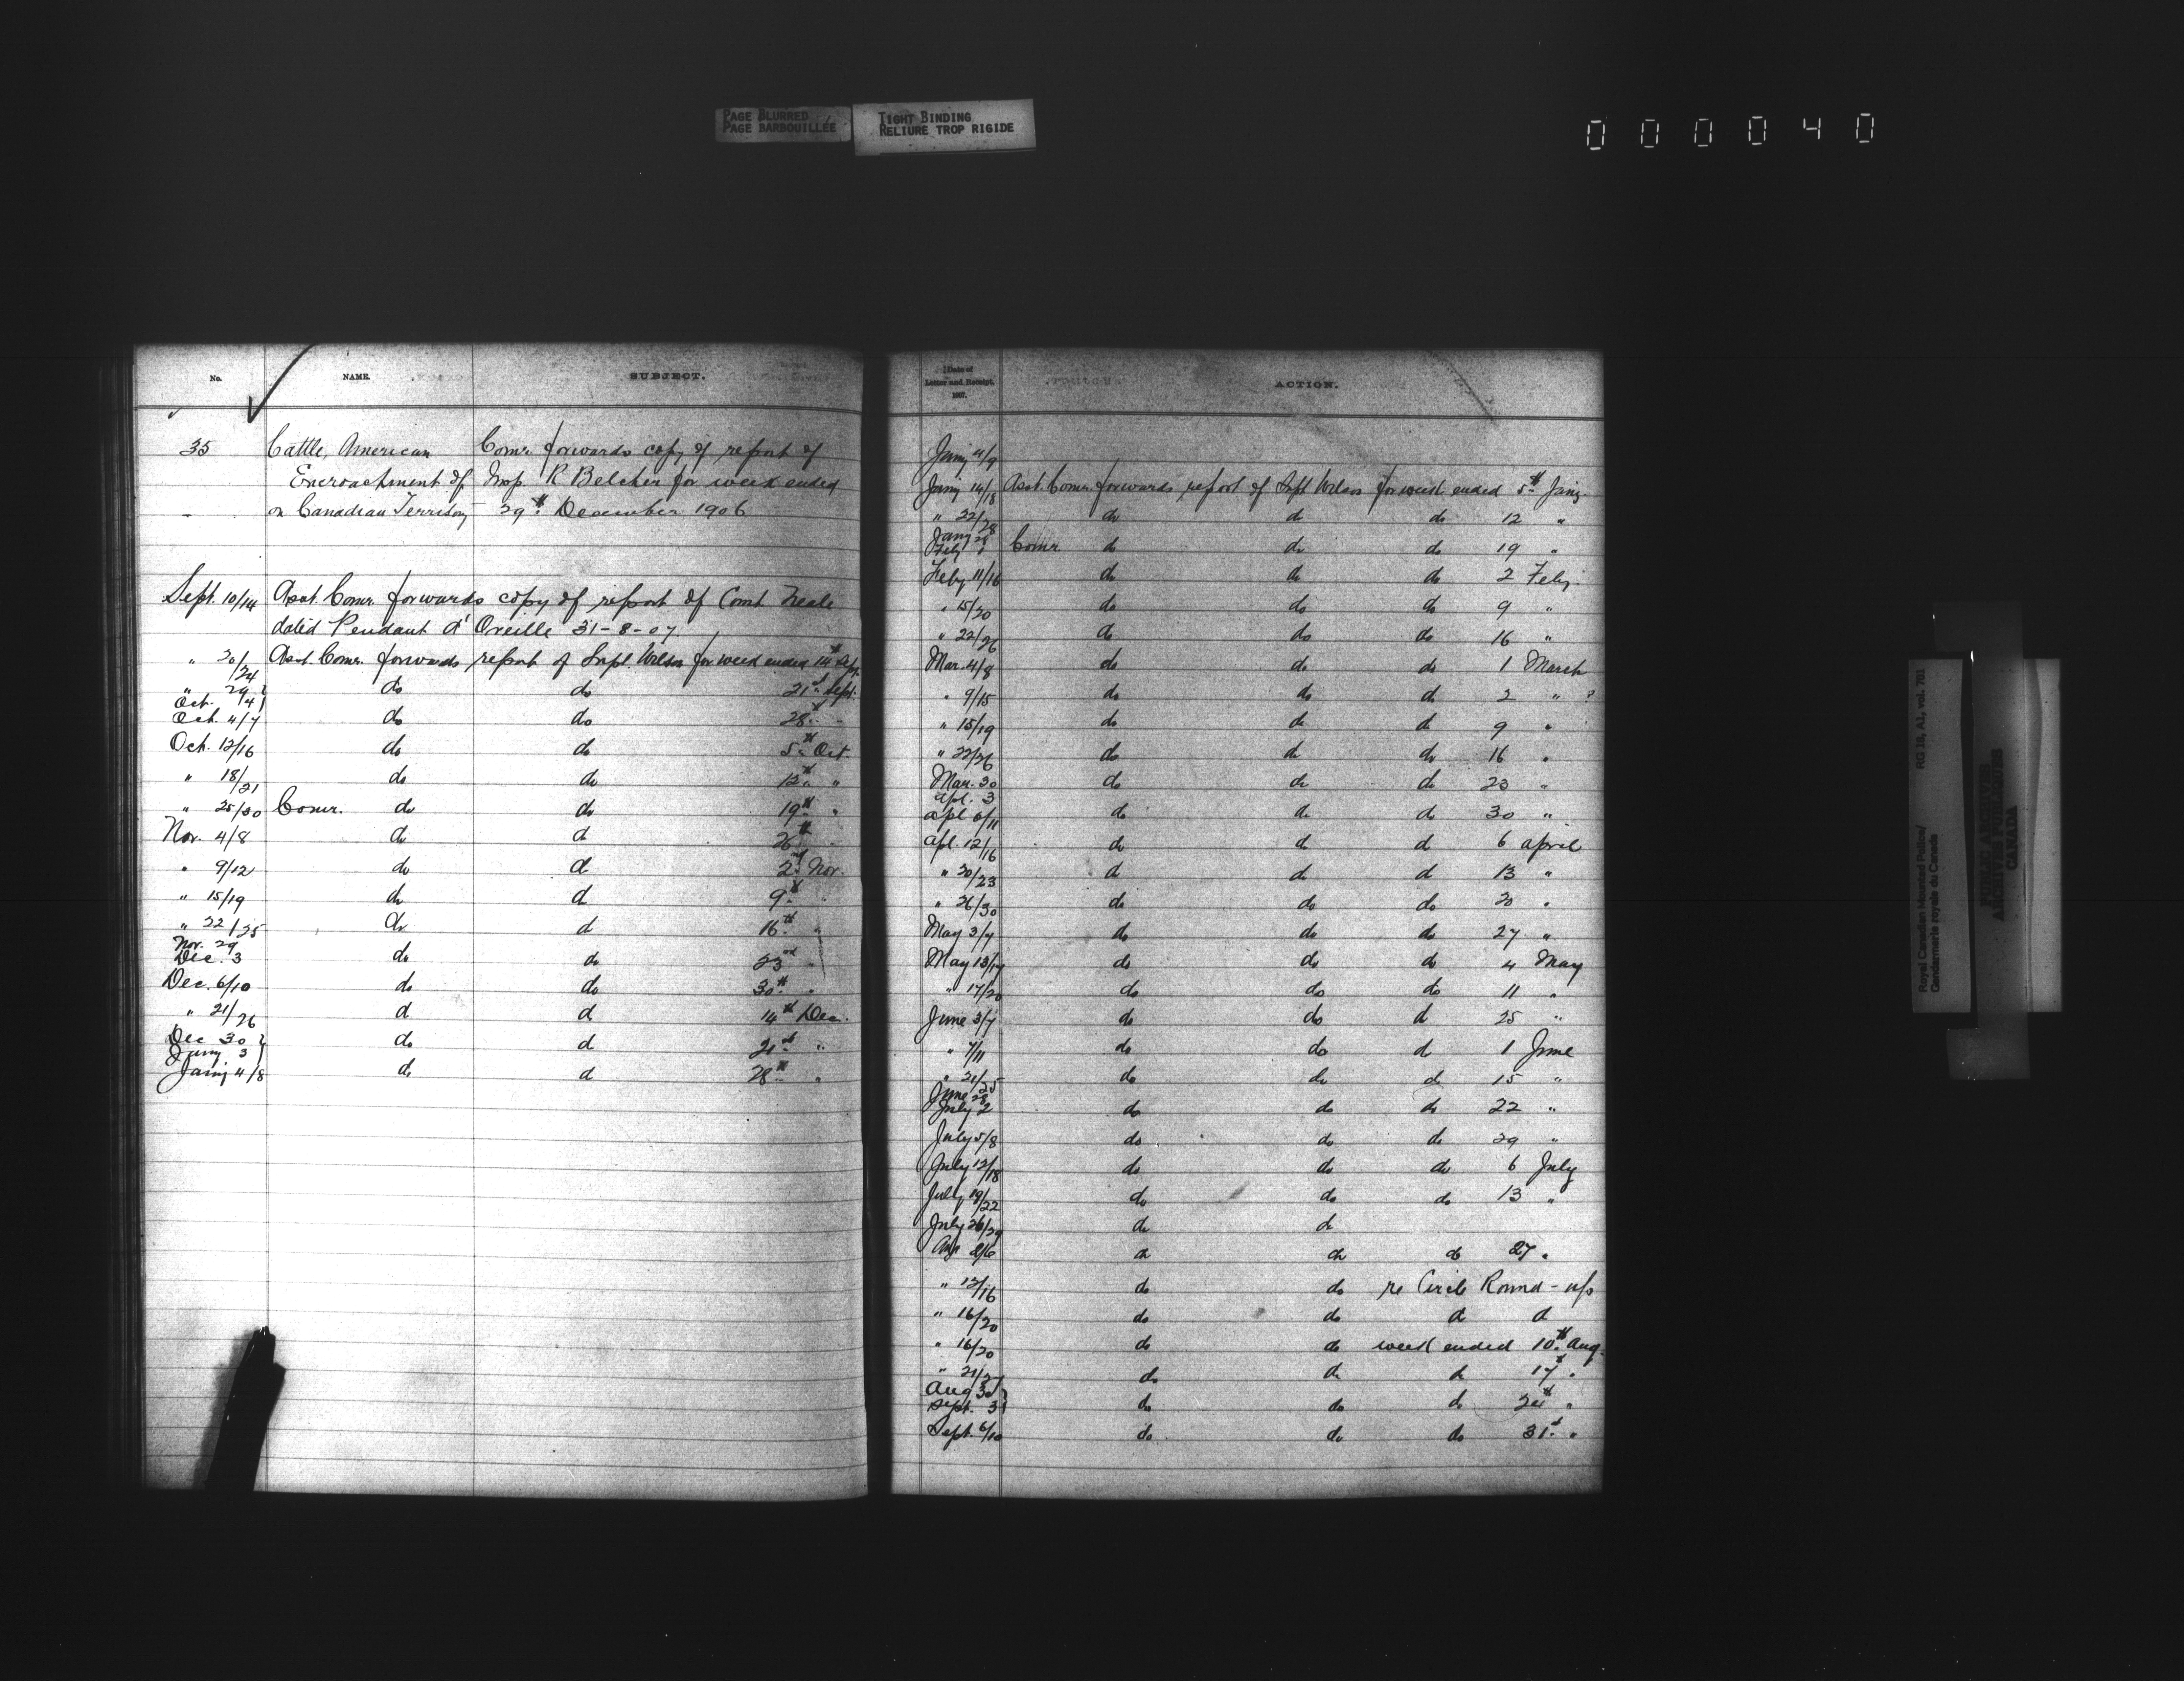 PAGE BLURRED
PAGE BARBOUILLÉE
TIGHT BINDING
RELIURE TROP RIGIDE
000040
No. NAME. SUBJECT.
35 Cattle, American Comr. forwards copy of report of
Encroachment of Insp. R Belcher for week ended
on Canadian Territory 29th December 1906
Sept. 10/14 Asst. Comr. forwards copy of report of Const Neale
dated Pendant d' Oreille 31-8-07.
" 20/24 Asst. Comr. forwards report of Supt. Wilson for week ended 14th Sept.
" 29} Oct. 4} do do 21st Sept.
Oct. 4/7 do do 28th "
Oct. 12/16 do do 5th Oct.
" 18/21 do do 12th "
" 25/30 Comr. do do 19th "
Nov. 4/8 do do 26th "
" 9/12 do do 2nd Nov.
" 15/19 do do 9th "
" 22/25 do do 16th "
Nov. 29 Dec. 3 do do 23rd "
Dec. 6/10 do do 30th "
" 21/26 do do 14th Dec.
Dec 30} Jany. 3} do do 21st "
Jany 4/8 do do 28th "
Date of Letter and Receipt. 1907. ACTION.
Jany 4/9
Jany 14/18 Asst. Comr. forwards report of Supt Wilson for week ended 5th Jany.
" 22/28 do do do 12 "
Jany 28 Feby 1 Comr. do do do 19 "
Feby 11/16 do do do 2 Feby.
" 15/20 do do do 9 "
" 22/26 do do do 16 "
Mar. 4/8 do do do 1 March
" 9/15 do do do 2 " ?
" 15/19 do do do 9 "
" 22/26 do do do 16 "
Mar. 30 Apl. 3 do do do 23 "
Apl 6/11 do do do 30 "
Apl. 12/16 do do do 6 April
" 20/23 do do do 13 "
" 26/30 do do do 20 "
May 3/7 do do do 27 "
May 13/17 do do do 4 May
" 17/20 do do do 11 "
June 3/7 do do do 25 "
" 7/11 do do do 1 June
" 21/25 do do do 15 "
June 28 July 2 do do do 22 "
July 5/8 do do do 29 "
July 12/18 do do do 6 July
July 19/22 do do do 13 "
July 26/29 do do
Aug 2/6 do do do 27 "
" 12/16 do do re Circle Round-up
" 16/20 do do do do
" 16/20 do do week ended 10th Aug.
" 21/ do do do 17th "
Aug 30} Sept. 3} do do do 24th "
Sept. 6/10 do do do 31st "
Royal Canadian Mounted Police/ RG 18, A1, vol. 701
Gendarmerie royale du Canada
PUBLIC ARCHIVES
ARCHIVES PUBLIQUES
CANADA